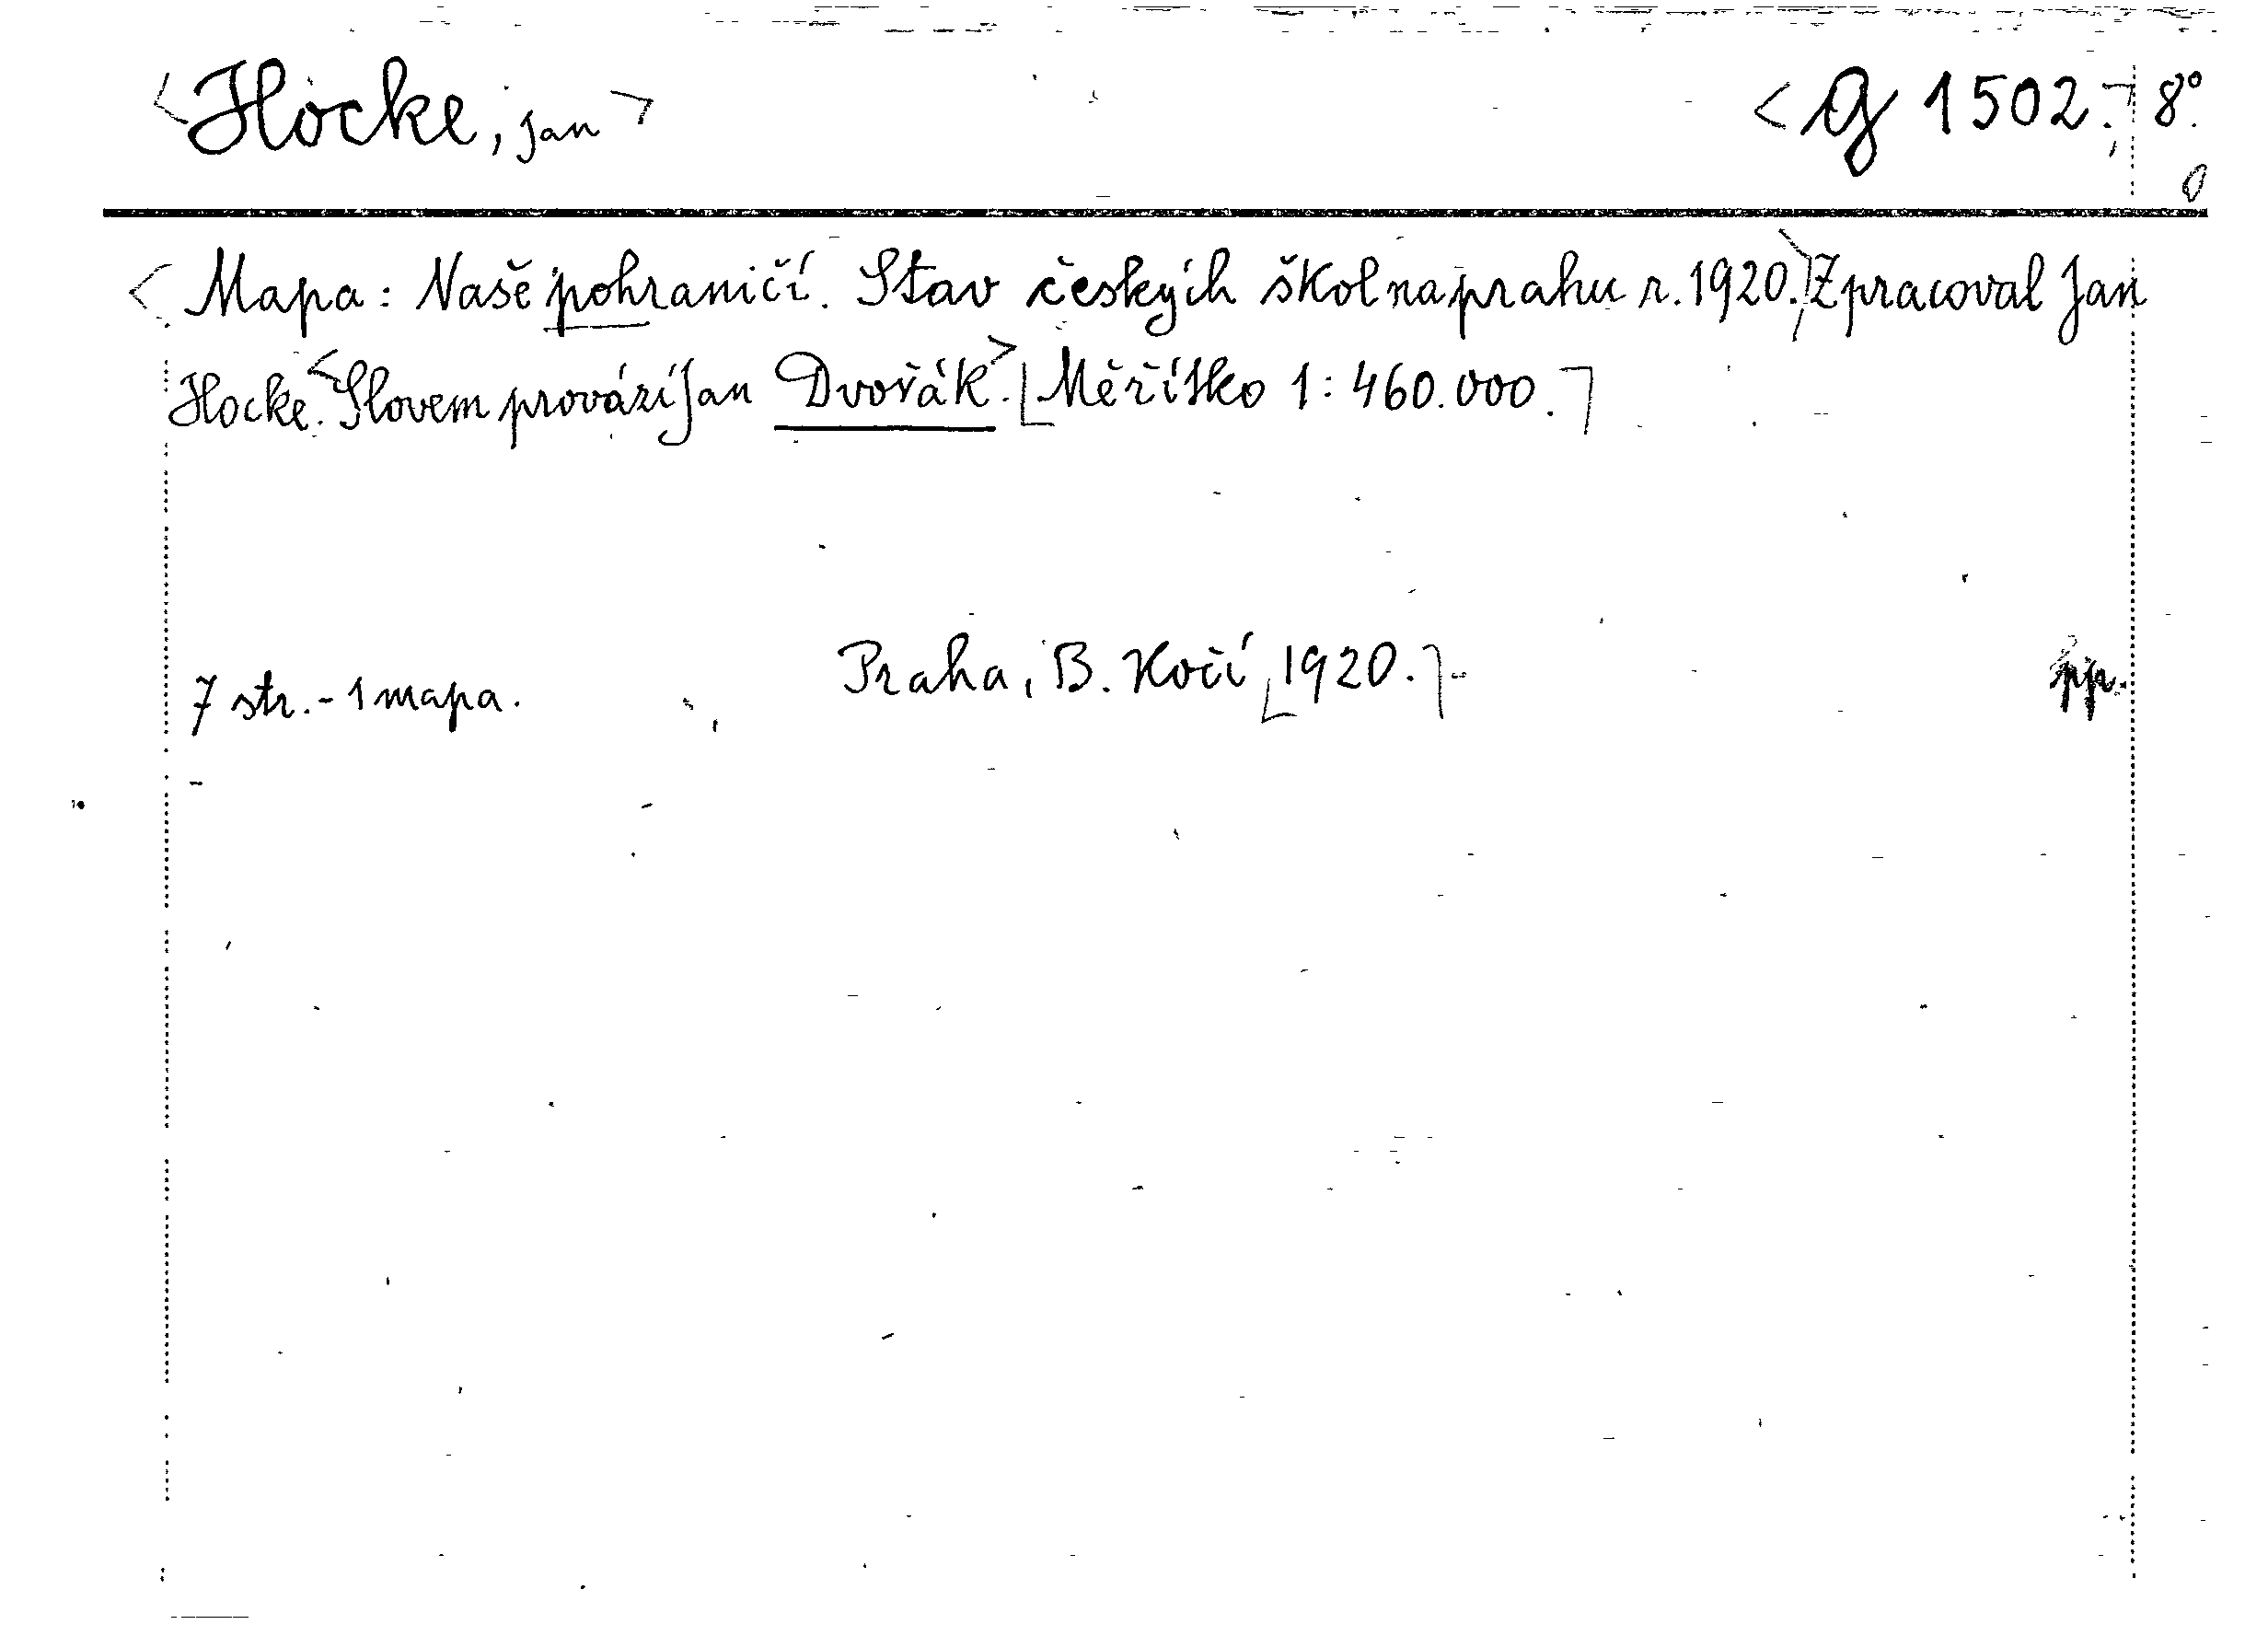 <Hocke, Jan> <G 1502.> 8°.
<Mapa: Naše pohraničí. Stav českých škol na prahu r. 1920.> Zpracoval Jan
Hocke. <Slovem provází Jan Dvořák.> [Měřítko 1:460.000.]
7 str. - 1 mapa. Praha, B. Kočí, [1920.]